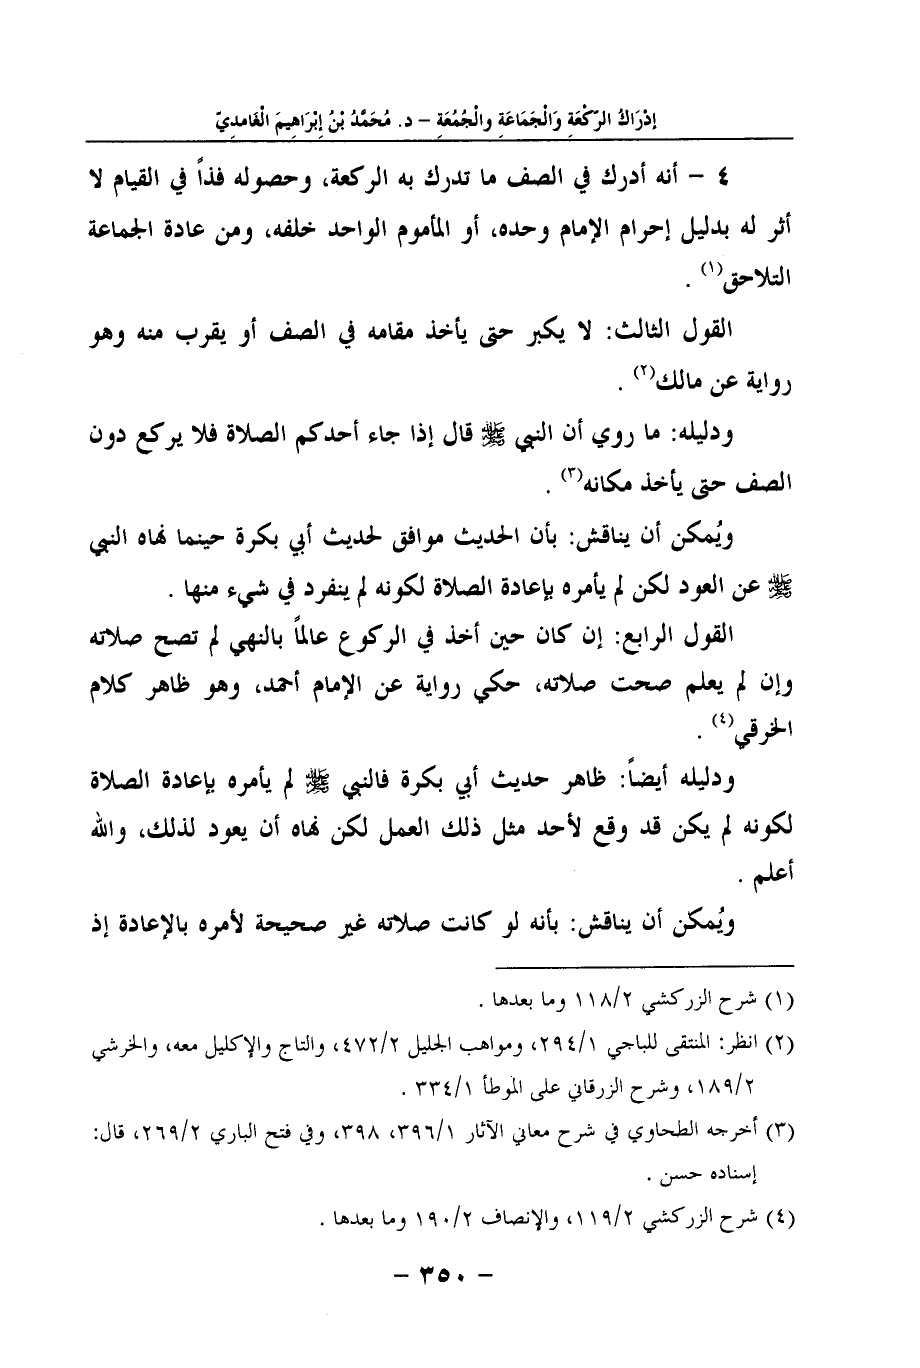 إدْرَاكُ الرَّكْعَةِ وَالْجَمَاعَةِ والْجُمُعَةِ – د. مُحَمَّدُ بْنُ إِبْرَاهِيمَ الْغَامديّ
٤ – أنه أدرك في الصف ما تدرك به الركعة، وحصوله فذاً في القيام لا
أثر له بدليل إحرام الإمام وحده، أو المأموم الواحد خلفه، ومن عادة الجماعة
التلاحق(١) .
القول الثالث: لا يكبر حتى يأخذ مقامه في الصف أو يقرب منه وهو
رواية عن مالك(٢) .
ودليله: ما روي أن النبي ﷺ قال إذا جاء أحدكم الصلاة فلا يركع دون
الصف حتى يأخذ مكانه(٣) .
ويُمكن أن يناقش: بأن الحديث موافق لحديث أبي بكرة حينما نهاه النبي
ﷺ عن العود لكن لم يأمره بإعادة الصلاة لكونه لم ينفرد في شيء منها .
القول الرابع: إن كان حين أخذ في الركوع عالماً بالنهي لم تصح صلاته
وإن لم يعلم صحت صلاته، حكي رواية عن الإمام أحمد، وهو ظاهر كلام
الخرقي(٤) .
ودليله أيضاً: ظاهر حديث أبي بكرة فالنبي ﷺ لم يأمره بإعادة الصلاة
لكونه لم يكن قد وقع لأحد مثل ذلك العمل لكن نهاه أن يعود لذلك، والله
أعلم .
ويُمكن أن يناقش: بأنه لو كانت صلاته غير صحيحة لأمره بالإعادة إذ
(١) شرح الزركشي ١١٨/٢ وما بعدها .
(٢) انظر: المنتقى للباجي ٢٩٤/١، ومواهب الجليل ٤٧٢/٢، والتاج والإكليل معه، والخرشي
١٨٩/٢، وشرح الزرقاني على الموطأ ٣٣٤/١ .
(٣) أخرجه الطحاوي في شرح معاني الآثار ٣٩٦/١، ٣٩٨، وفي فتح الباري ٢٦٩/٢، قال:
إسناده حسن .
(٤) شرح الزركشي ١١٩/٢، والإنصاف ١٩٠/٢ وما بعدها .
– ٣٥٠ –